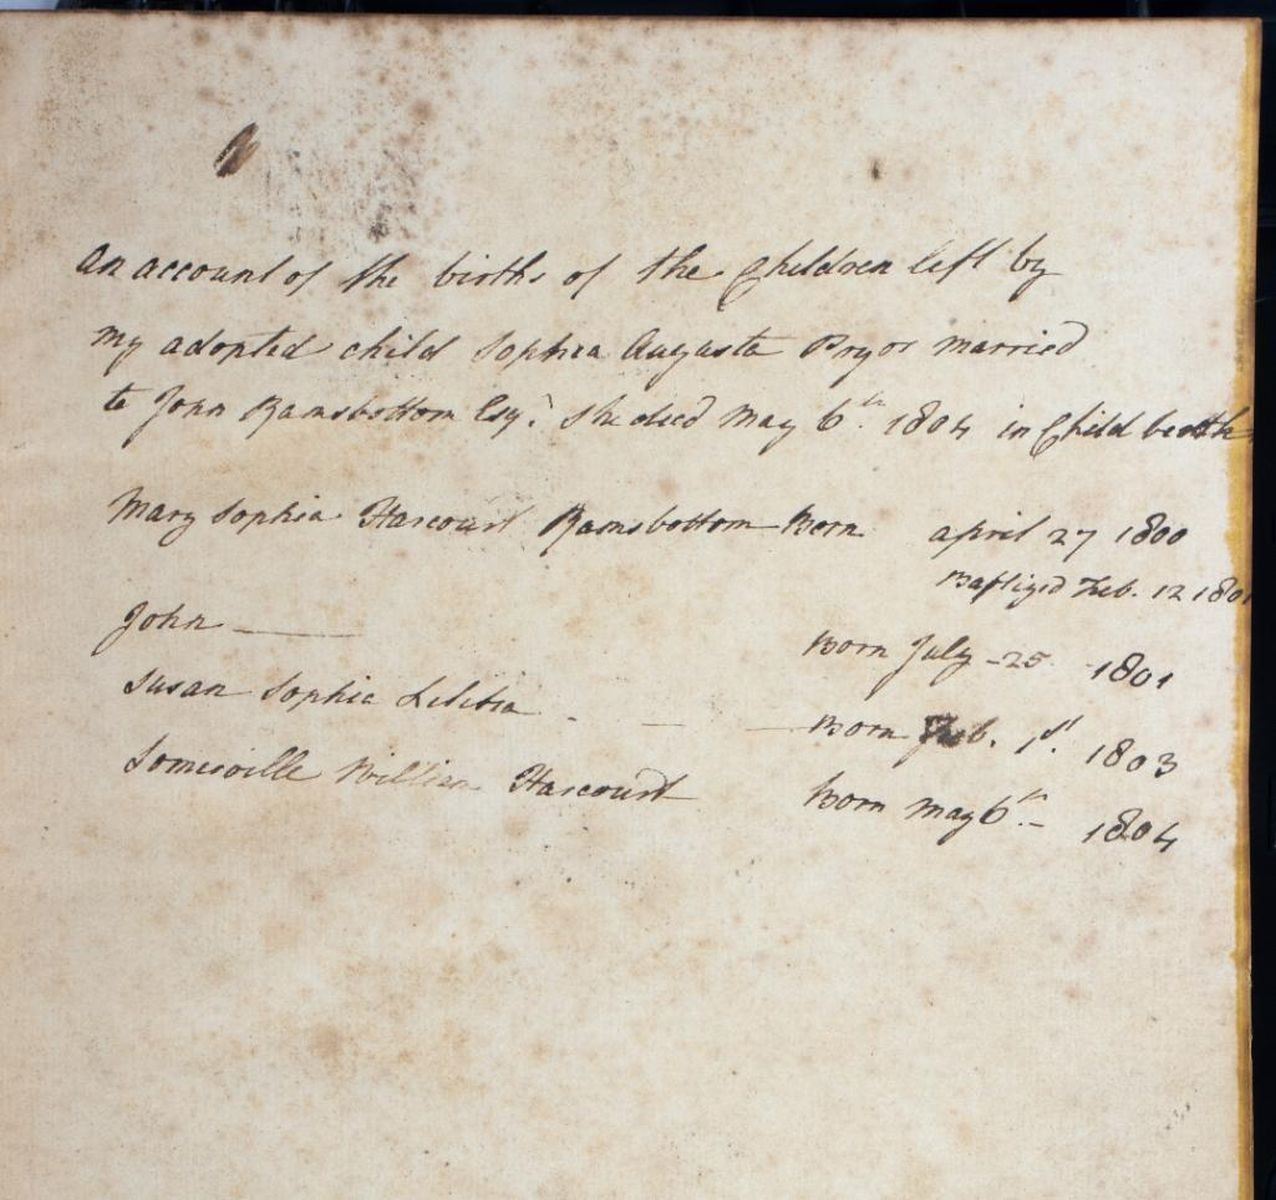 An account of the births of the Children left by
my adopted child Sophia Augusta Pryor married
to John Ramsbottom Esqr. She died May 6th. 1804 in Child birth
Mary Sophia Harcourt Ramsbottom Born april 27 1800
Baptized Feb. 12 1801
John — Born July - 25 - 1801
Susan Sophia Letitia - — — Born Feb. 1st. 1803
Somerville William Harcourt Born may 6th. - 1804